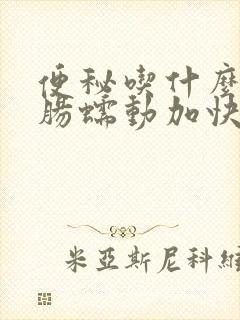 便秘喫什麼
腸蠕動加快
米亞斯尼科維